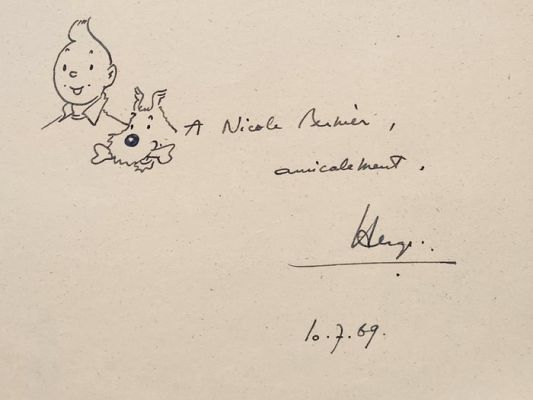 A Nicole Bernier,
amicalement.
Hergé.
10.7.69.